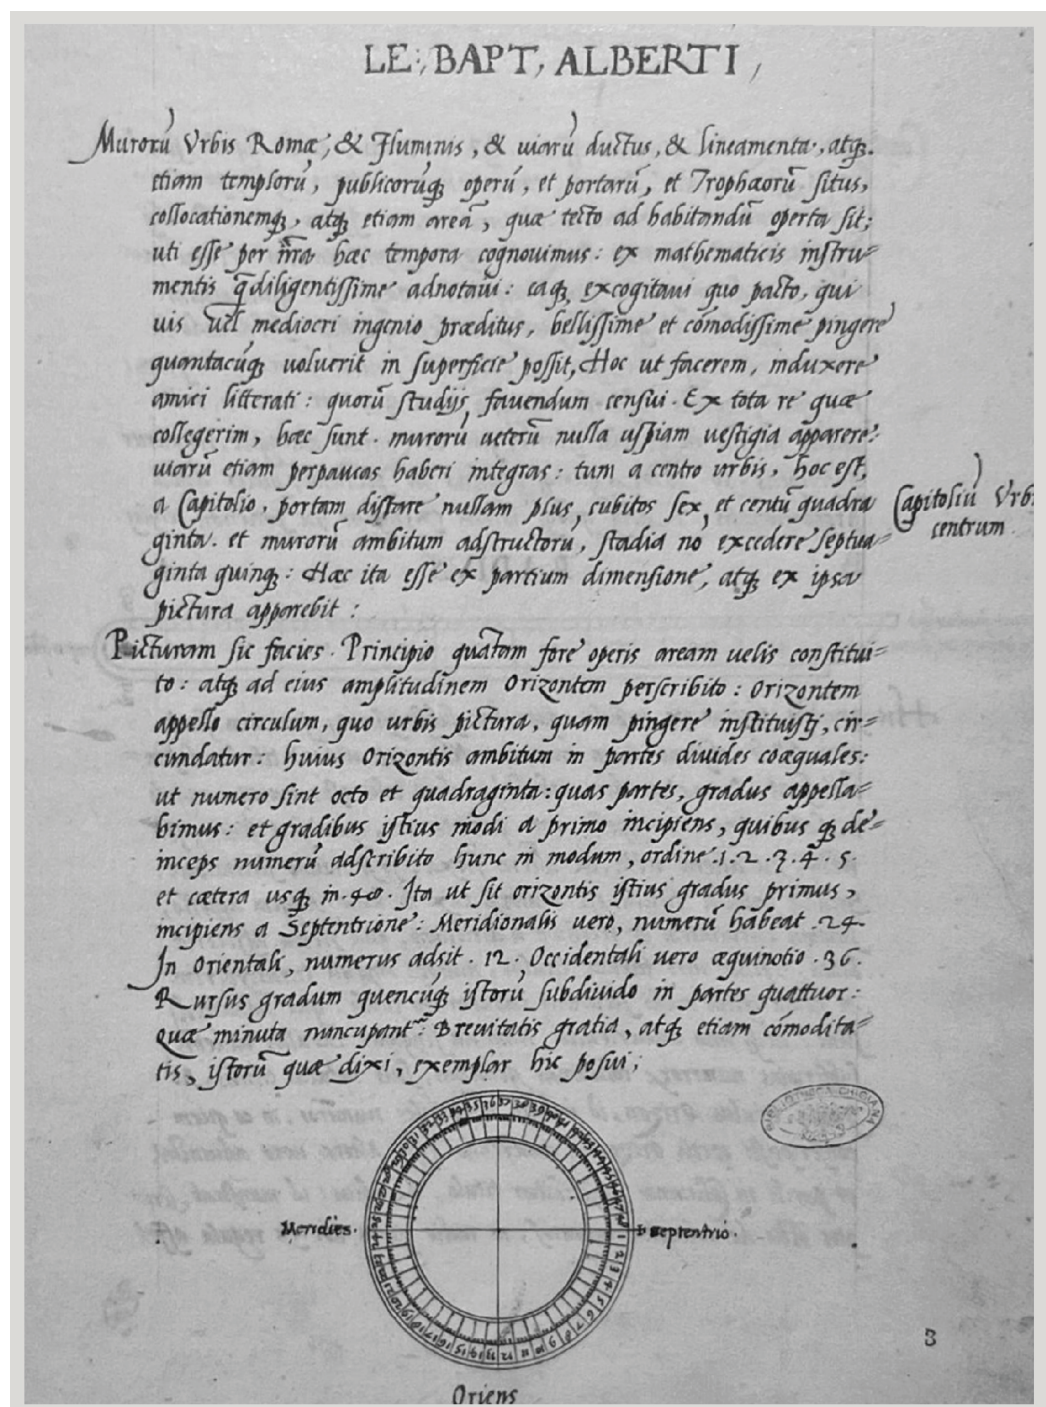 LE:, BAPT, ALBERTI,
Murorū Vrbis Romæ, & Fluminis, & uiarū ductus, & lineamenta, atq3.
etiam templorū, publicorūq3 operū, et portarū, et Trophæorū situs,
collocationemq3, atq3 etiam areā, quæ tecto ad habitandū operta sit;
uti esse per nr̄a hæc tempora cognouimus: ex mathematicis instru=
mentis q̄diligentissime adnotaui: eaq3 excogitaui quo pacto, qui
uis uel mediocri ingenio præditus, bellissime et cōmodissime pingere
quantacūq3 uoluerit in superficie possit, Hoc ut facerem, induxere
amici litterati: quorū studijs fauendum censui. Ex tota re quæ
collegerim, hæc sunt. murorū ueterū nulla uspiam uestigia apparere:
uiarū etiam perpaucas haberi integras: tum a centro urbis, hoc est,
a Capitolio, portam distare nullam plus, cubitos sex, et centū quadra
Capitoliū Vrbis
centrum.
ginta. et murorū ambitum adstructorū, stadia nō excedere septua=
ginta quinq3: Hæc ita esse ex partium dimensione, atq3 ex ipsa
pictura apparebit:
Picturam sic facies. Principio quātam fore operis aream uelis constitui=
to: atq3 ad eius amplitudinem Orizontem perscribito: Orizontem
appello circulum, quo urbis pictura, quam pingere instituisti, cir=
cundatur: huius Orizontis ambitum in partes diuides coæquales:
ut numero sint octo et quadraginta: quas partes, gradus appella=
bimus: et gradibus istius modi a primo incipiens, quibus q3 de=
inceps numerū adscribito hunc in modum, ordine .1.2.3.4.5.
et cætera usq3 in .48. Ita ut sit orizontis istius gradus primus,
incipiens a Septentrione: Meridionalis uero, numerū habeat .24.
In Orientali, numerus adsit .12. Occidentali uero æquinotio .36.
Rursus gradum quencūq3 istorū subdiuido in partes quattuor:
Quæ minuta nuncupantr: Breuitatis gratia, atq3 etiam cōmodita=
tis, istorū quæ dixi, exemplar hic posui;
BIBLIOTHECA CHIGIANA
Meridies.
septentrio.
3
Oriens